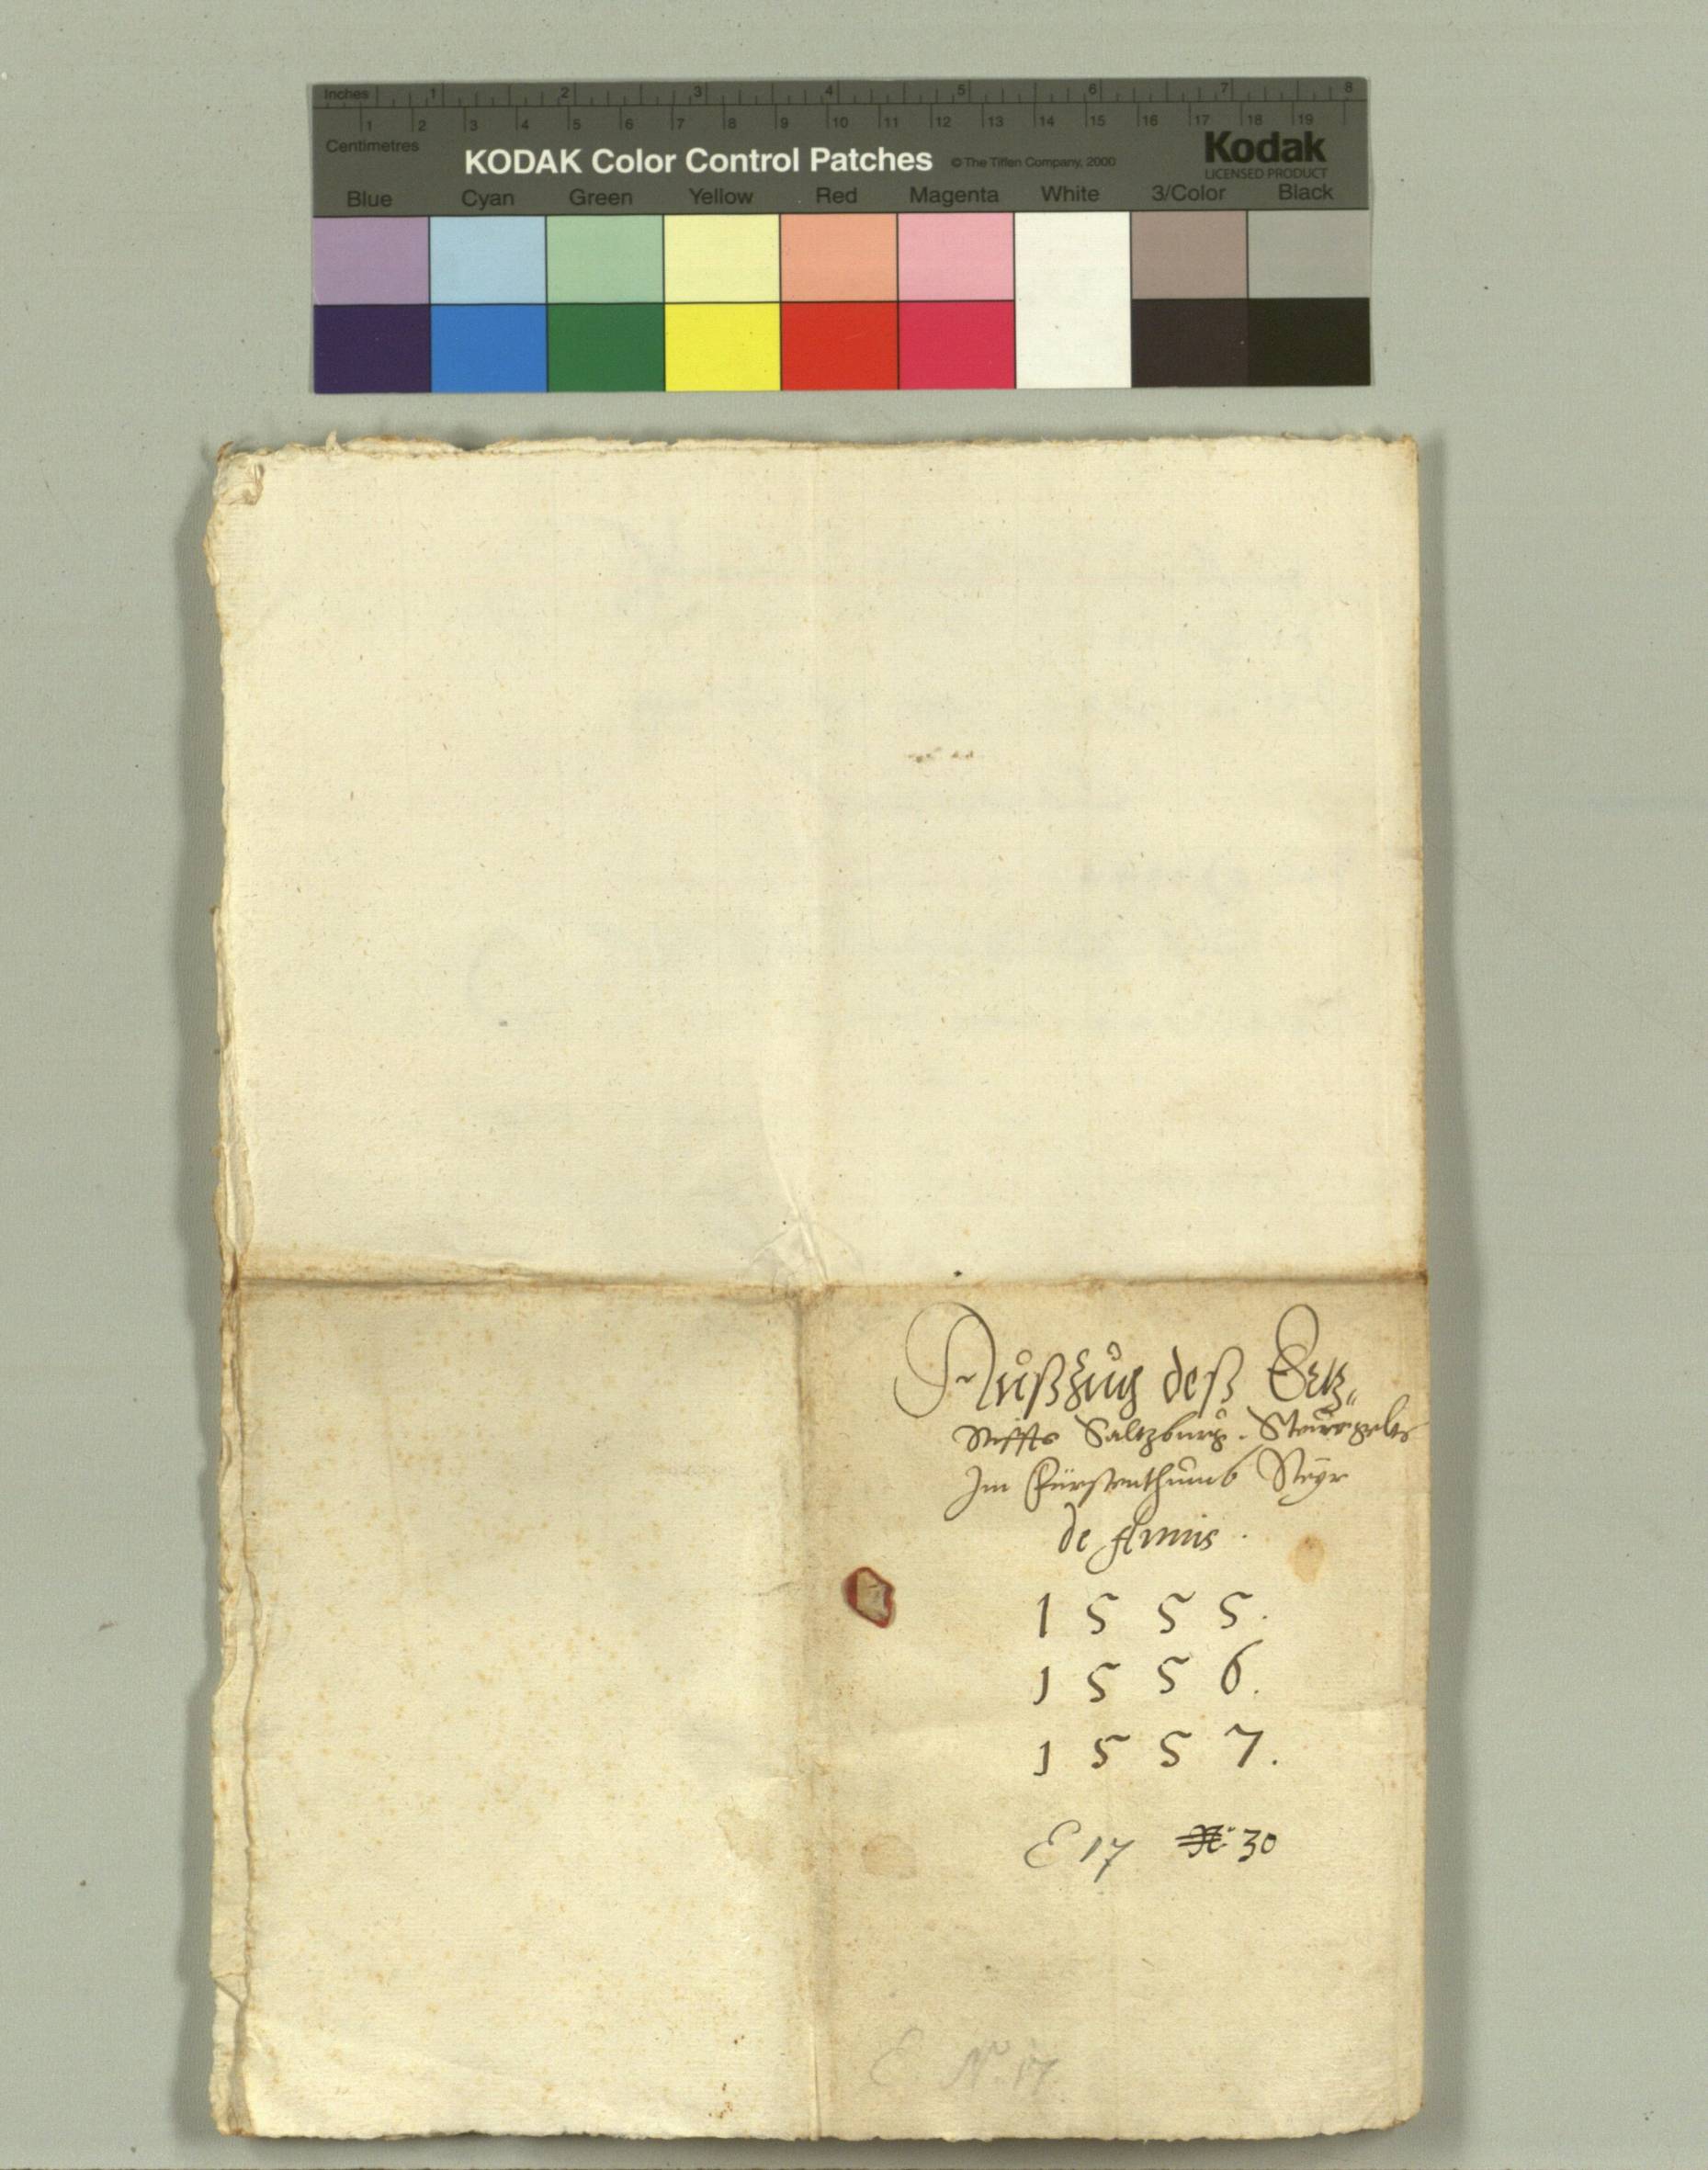 Inches 1 2 3 4 5 6 7 8
1 2 3 4 5 6 7 8 9 10 11 12 13 14 15 16 17 18 19
Centimetres
KODAK Color Control Patches © The Tiffen Company, 2000 Kodak
LICENSED PRODUCT
Blue Cyan Green Yellow Red Magenta White 3/Color Black
Außzug deß Ertz„
Stiffts Saltzburg. Steurgelts
Im Fürstenthumb Steyr
de Annis.
1555.
1556.
1557.
E 17 N: 30
E. No. 17.